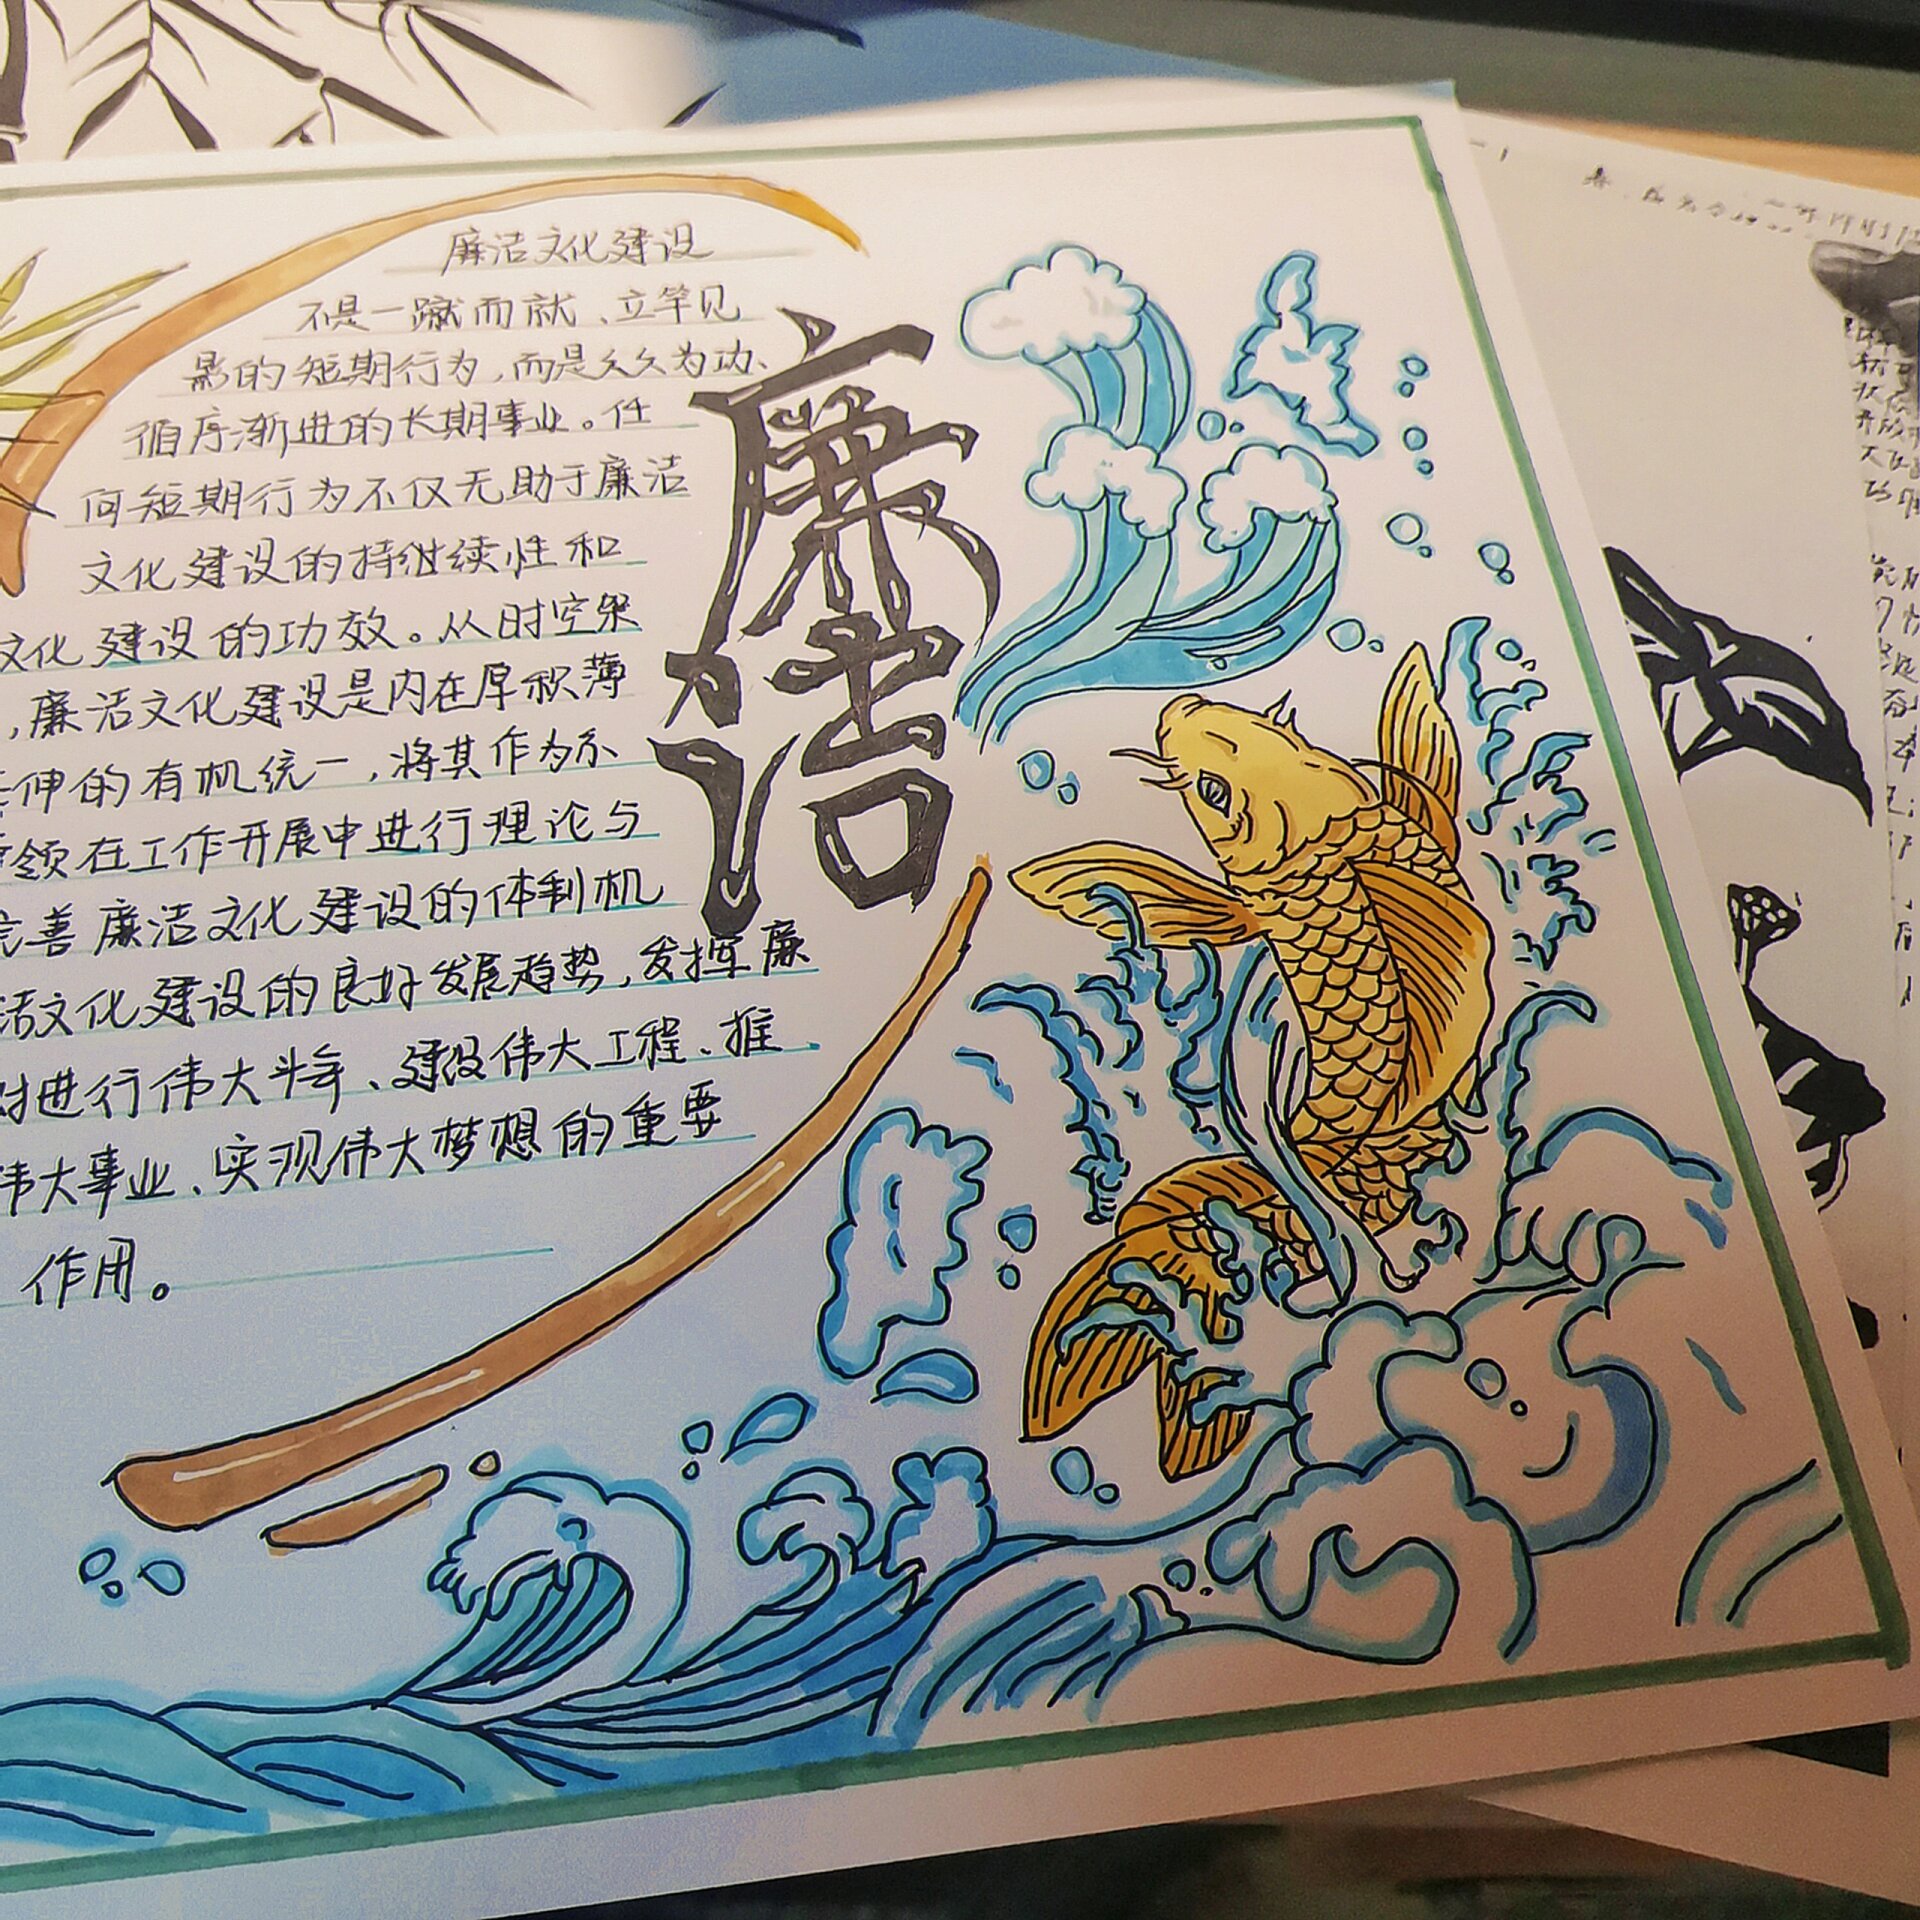 廉洁文化建设
不是一蹴而就、立竿见
影的短期行为,而是久久为功、
循序渐进的长期事业。任
何短期行为不仅无助于廉洁
文化建设的持继续性和
文化建设的功效。从时空架
,廉洁文化建设是内在厚积薄
伸的有机统一,将其作为不
领在工作开展中进行理论与
完善廉洁文化建设的体制机
洁文化建设的良好发展趋势,发挥廉
进行伟大斗争、建设伟大工程、推
伟大事业、实现伟大梦想的重要
作用。
廉洁